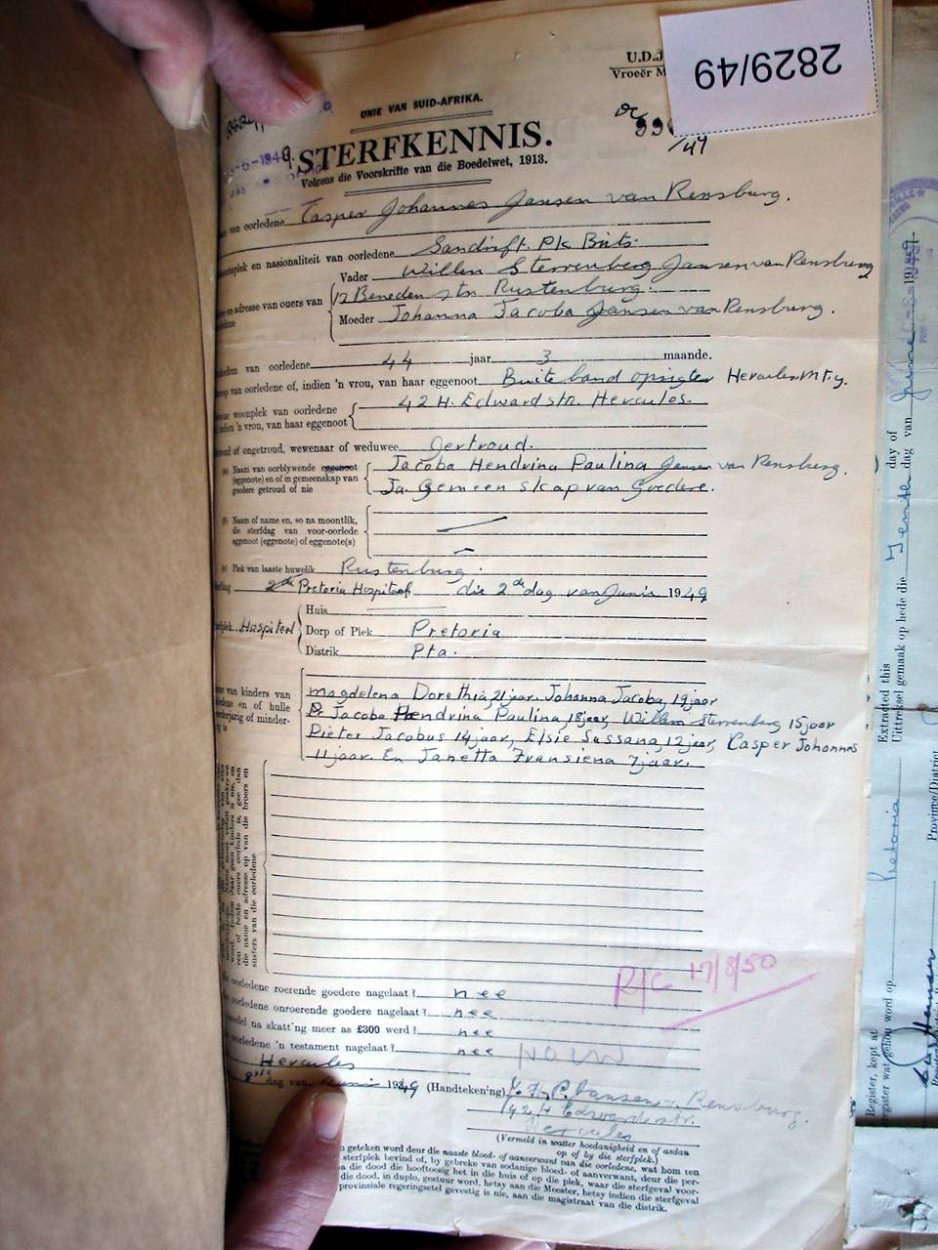 2829/49
U.D.J
Vroeër M
UNIE VAN SUID-AFRIKA.
/49
STERFKENNIS.
Volgens die Voorskrifte van die Boedelwet, 1913.
van oorledene Casper Johannes Jansen van Rensburg.
en nasionaliteit van oorledene Sandrift. Pk Brits.
Vader Willem Sterrenberg Jansen van Rensburg
en adresse van ouers van
12 Beneden str Rustenburg.
Moeder Johanna Jacoba Jansen van Rensburg.
van oorledene 44 jaar 3 maande.
van oorledene of, indien 'n vrou, van haar eggenoot Buite band opsigter Hercules Mpy.
woonplek van oorledene 42 H. Edward str. Hercules.
indien 'n vrou, van haar eggenoot
of ongetroud, wewenaar of weduwee Getroud.
(a) Naam van oorblywende eggenoot Jacoba Hendrina Paulina Jansen van Rensburg.
(eggenote) en of in gemeenskap van
goedere getroud of nie Ja. Gemeenskap van Goedere.
(b) Naam of name en, so na moontlik,
die sterfdag van voor-oorlede
eggenoot (eggenote) of eggenote(s)
(c) Plek van laaste huwelik Rustenburg.
Pretoria Hospitaal die 2de dag van Junie 1949
Huis
Hospitaal
Dorp of Plek Pretoria
Distrik Pta.
van kinders van
en of hulle
of minder-
Magdelena Dorethia, 21 jaar. Johanna Jacoba, 19 jaar
Jacoba Hendrina Paulina, 18 jaar, Willem Sterrenberg 15 jaar
Pieter Jacobus 14 jaar, Elsie Sussana, 12 jaar, Casper Johannes
11 jaar. En Janetta Fransiena 7 jaar.
die name en adresse op van die broers en
susters van die oorledene
R/C 17/8/50
oorledene roerende goedere nagelaat? nee
oorledene onroerende goedere nagelaat? nee
na skatt'ng meer as £300 werd? nee
oorledene 'n testament nagelaat? nee
Hercules
dag van Junie 1949 (Handteken'ng) J. H. P. Jansen v. Rensburg.
42 H Edwardstr.
Hercules
(Vermeld in watter hoedanigheid en of aldan
op of by die sterfplek.)
geteken word deur die naaste bloed- of aanverwant van die oorledene, wat hom ten
sterfplek bevind of, by gebreke van sodanige bloed- of aanverwant, deur die per-
die dood die hooftoesig het in die huis of op die plek, waar die sterfgeval voor-
die dood, in duplo, gestuur word, hetsy aan die Meester, hetsy indien die sterfgeval
provinsiale regeringsetel gevestig is nie, aan die magistraat van die distrik.
Extracted this day of
Uittreksel gemaak op hede die dag van
Pretoria
Province/District
Register, kept at
register wat gehou word op